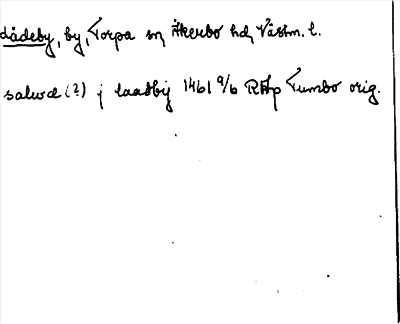 Lådeby, by, Torpa sn, Åkerbo hd, Västm. l.
salwd (?) j laadby 1461 9/6 RAp Tumbo orig.